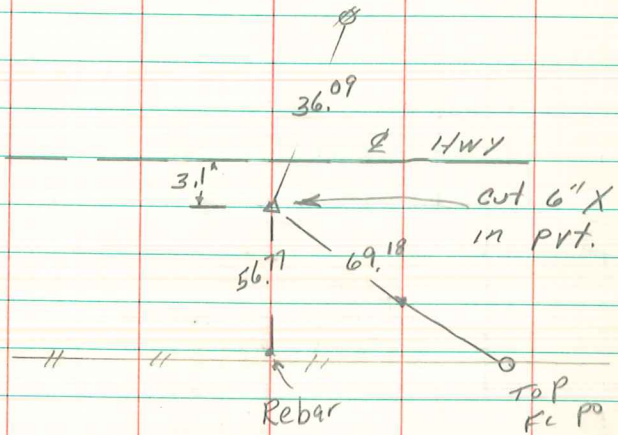 36.09
℄ HWY
3.1'
cut 6" X
in pvt.
56.77
69.18
Rebar
TOP
Fc po